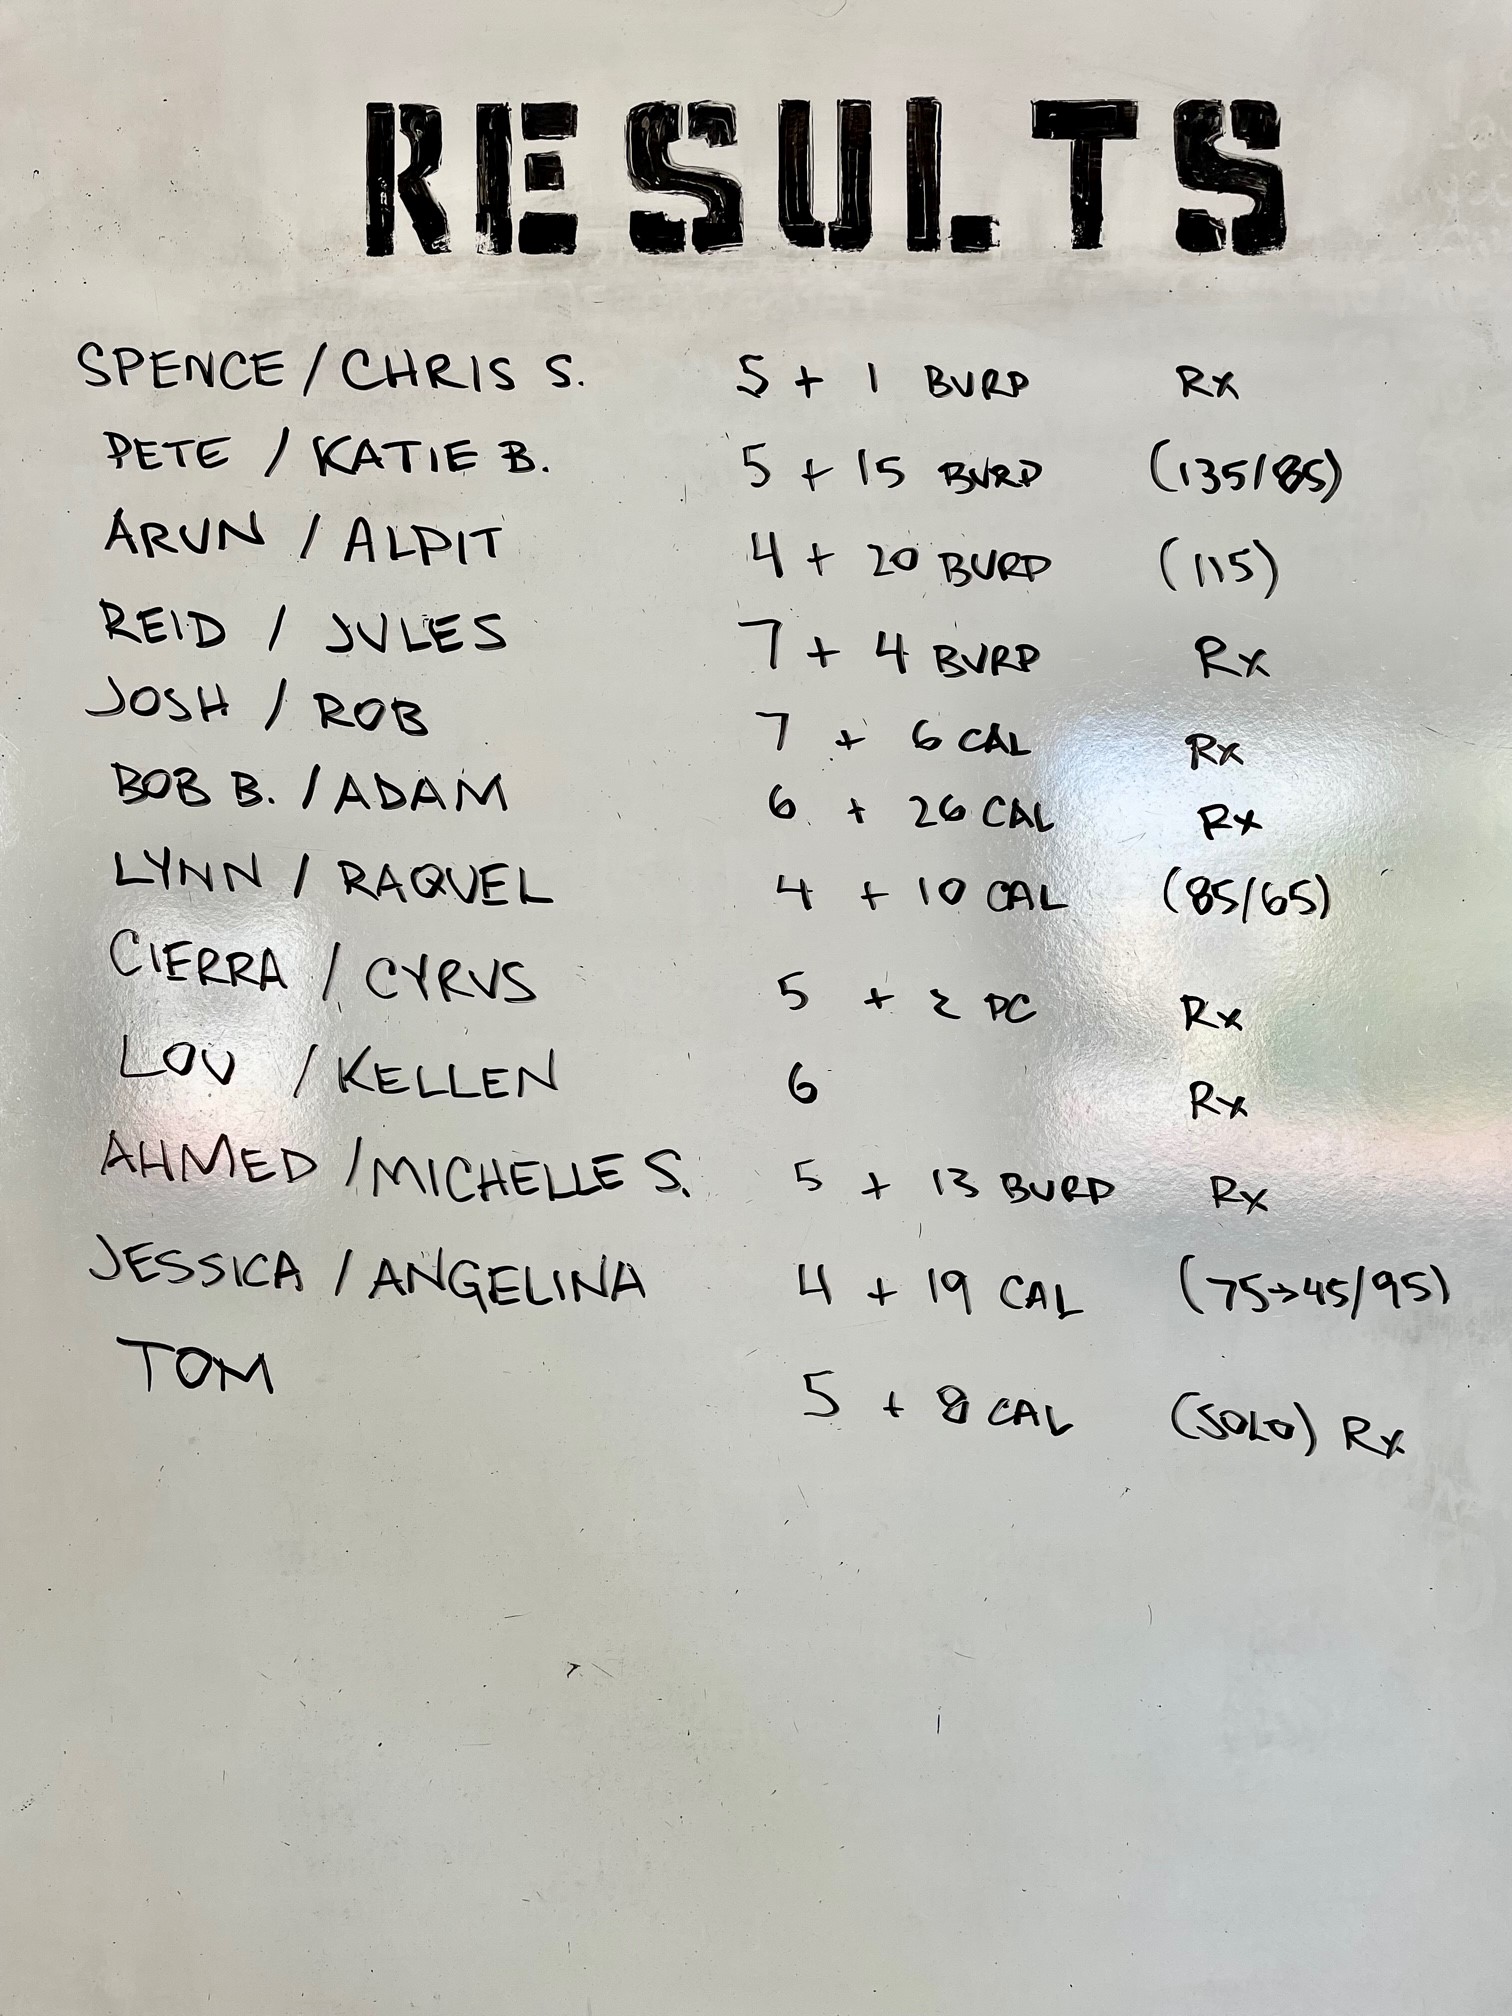 RESULTS
SPENCE / CHRIS S. 5 + 1 BURP Rx
PETE / KATIE B. 5 + 15 BURP (135/85)
ARUN / ALPIT 4 + 20 BURP (115)
REID / JULES 7 + 4 BURP Rx
JOSH / ROB 7 + 6 CAL Rx
BOB B. / ADAM 6 + 26 CAL Rx
LYNN / RAQUEL 4 + 10 CAL (85/65)
CIERRA / CYRUS 5 + 2 PC Rx
LOU / KELLEN 6 Rx
AHMED / MICHELLE S. 5 + 13 BURP Rx
JESSICA / ANGELINA 4 + 19 CAL (75→45/95)
TOM 5 + 8 CAL (SOLO) Rx